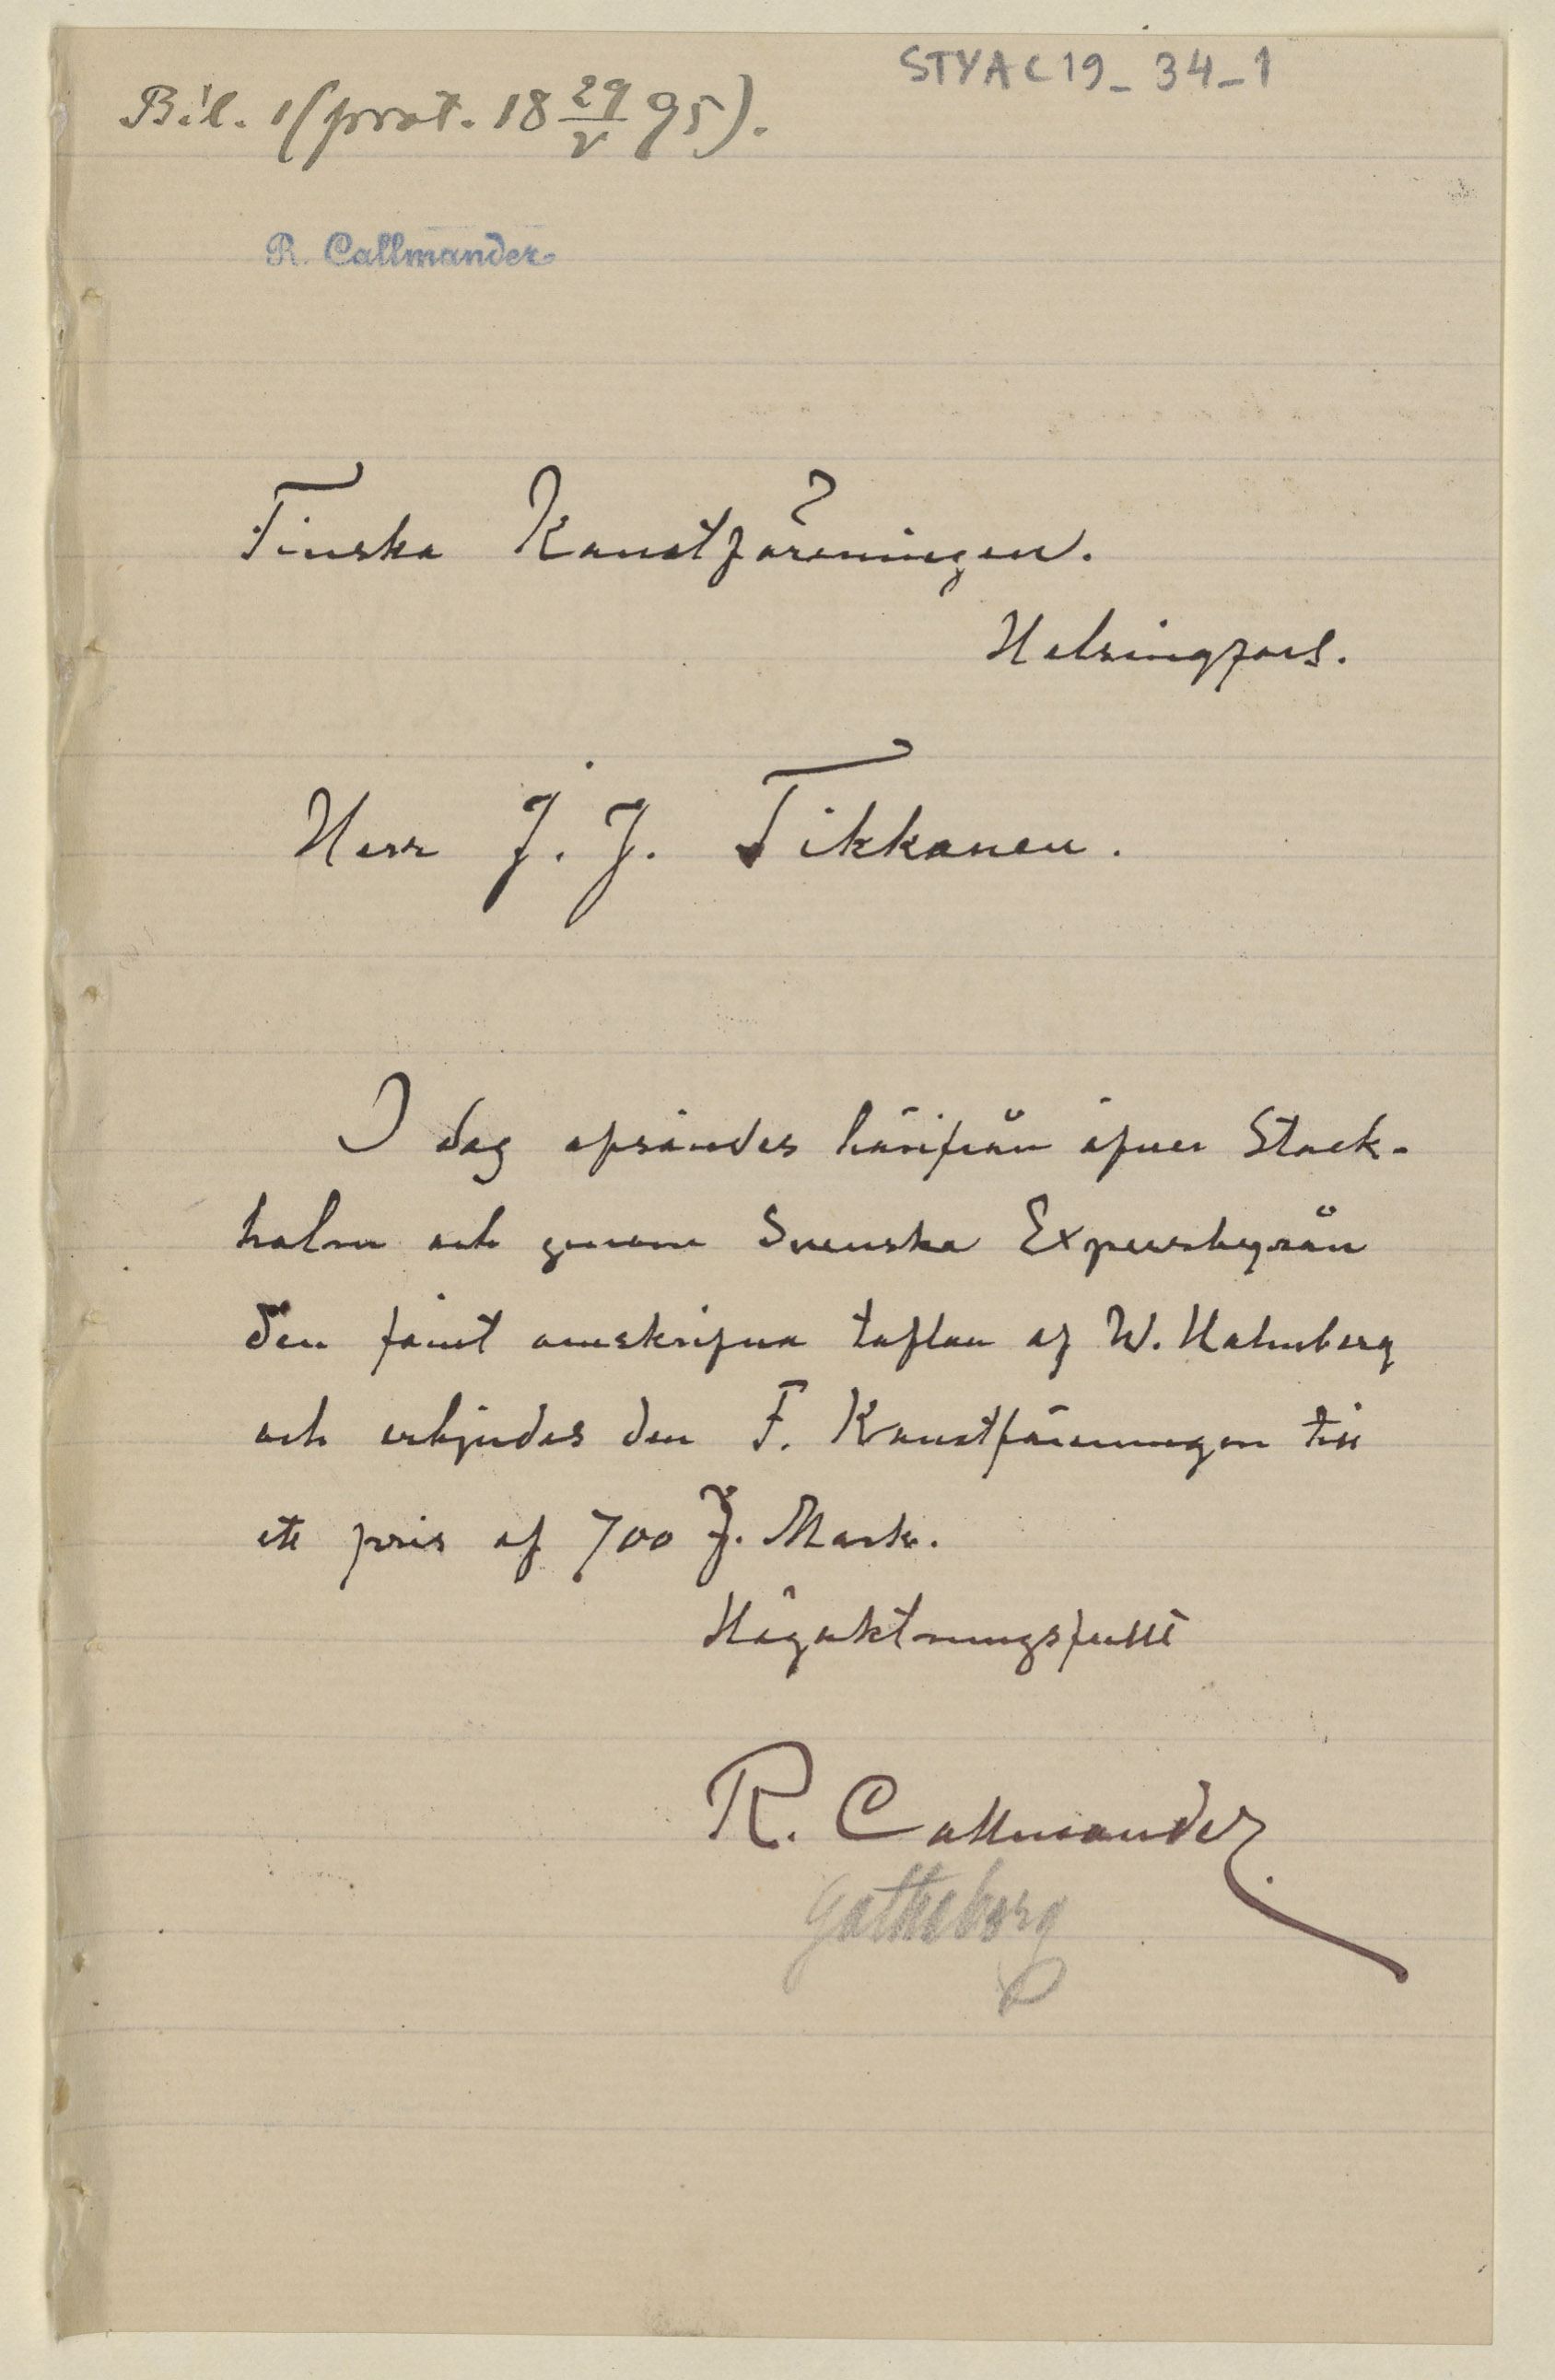 STYA C19_34_1
Bil. 1 (prot. 18 29/V 95).
R. Callmander
Finska Konstföreningen.
Helsingfors.
Herr J. J. Tikkanen.
I dag afsändes härifrån öfver Stock-
holm och genom Svenska Expressbyrån
den förut omskrifna taflan af W. Holmberg
och erbjudes den F. Konstföreningen till
ett pris af 700 F. Mark.
Högaktningsfullt
R. Callmander
Götheborg